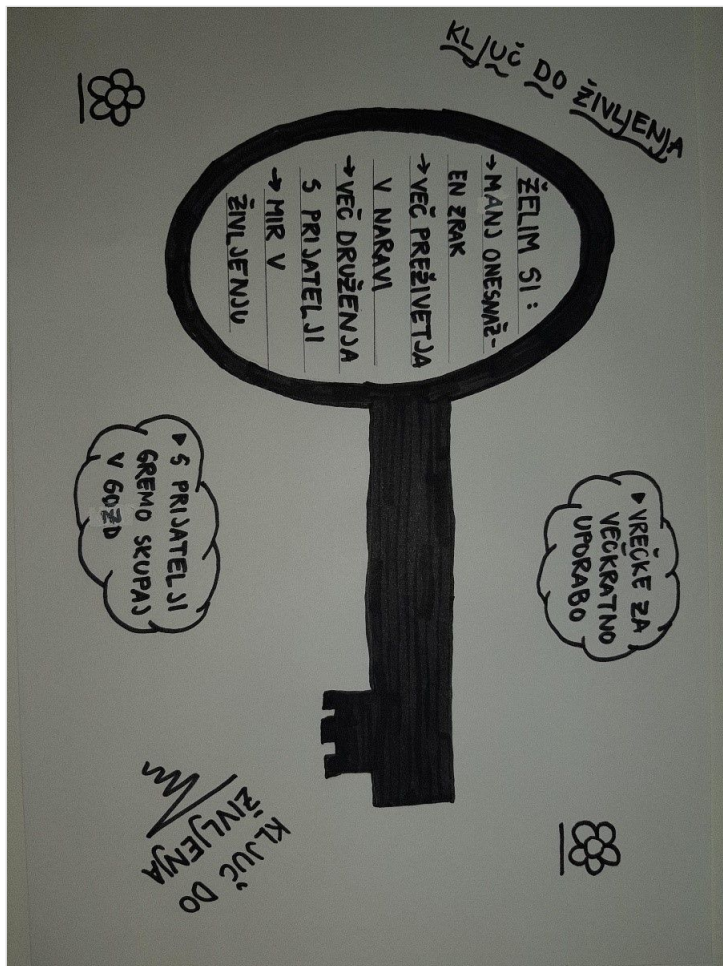 KLJUČ DO ŽIVLJENJA
ŽELIM SI:
→ MANJ ONESNAŽ-
EN ZRAK
→ VEČ PREŽIVETJA
V NARAVI
→ VEČ DRUŽENJA
S PRIJATELJI
→ MIR V
ŽIVLJENJU
▸ VREČKE ZA
VEČKRATNO
UPORABO
▸ S PRIJATELJI
GREMO SKUPAJ
V GOZD
KLJUČ DO
ŽIVLJENJA